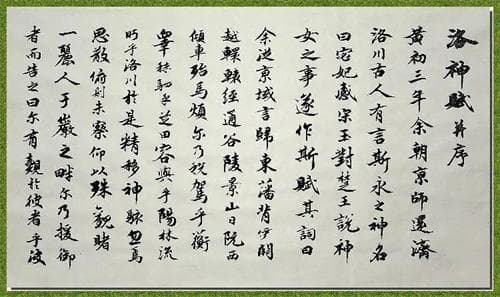 洛神賦 并序
黃初三年余朝京師還濟
洛川古人有言斯水之神名
曰宓妃感宋玉對楚王說神
女之事遂作斯賦其詞曰
余從京域言歸東藩背伊闕
越轘轅經通谷陵景山日既西
傾車殆馬煩尔乃税駕乎蘅
皋秣駟乎芝田容與乎陽林流
眄乎洛川於是精移神駭忽焉
思散俯則未察仰以殊觀睹
一麗人于巖之畔尔乃援御
者而告之曰尔有覿於彼者乎彼